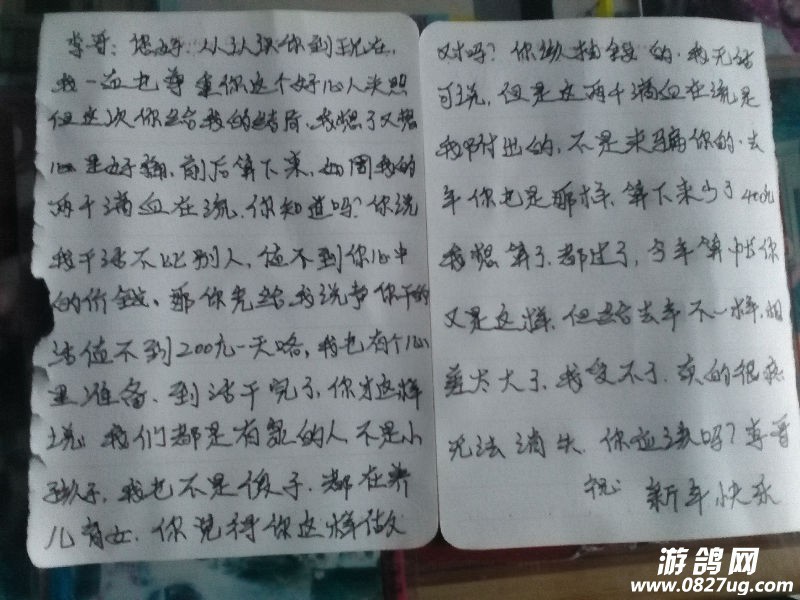 李哥：您好：从认识你到现在，
我一直也尊重你这个好心人关照
但这次你给我的结局、我想了又想
心里好痛，前后算下来，如同我的
两千滴血在流、你知道吗？你说
我干活不比别人，值不到你心中
的价钱、那你先给我说声你干的
活值不到200元一天咯，我也有个心
里准备、到活干完了，你才这样
说 我们都是有家的人不是小
孩子，我也不是傻子．都在养
儿育女．你觉得你这样做
对吗？你做人 的．我无话
可说，但是这两千滴血在流是
我付出的，不是来骗你的．去
年你也是那样，算下来少了400元
我想算了．都过了，今年算 你
又是这样．但是 去年不一样，相
差太大了，我受不了．真的很痛
无法消失．你应该吗？李哥
祝 新年快乐
游鸽网
www.0827ug.com